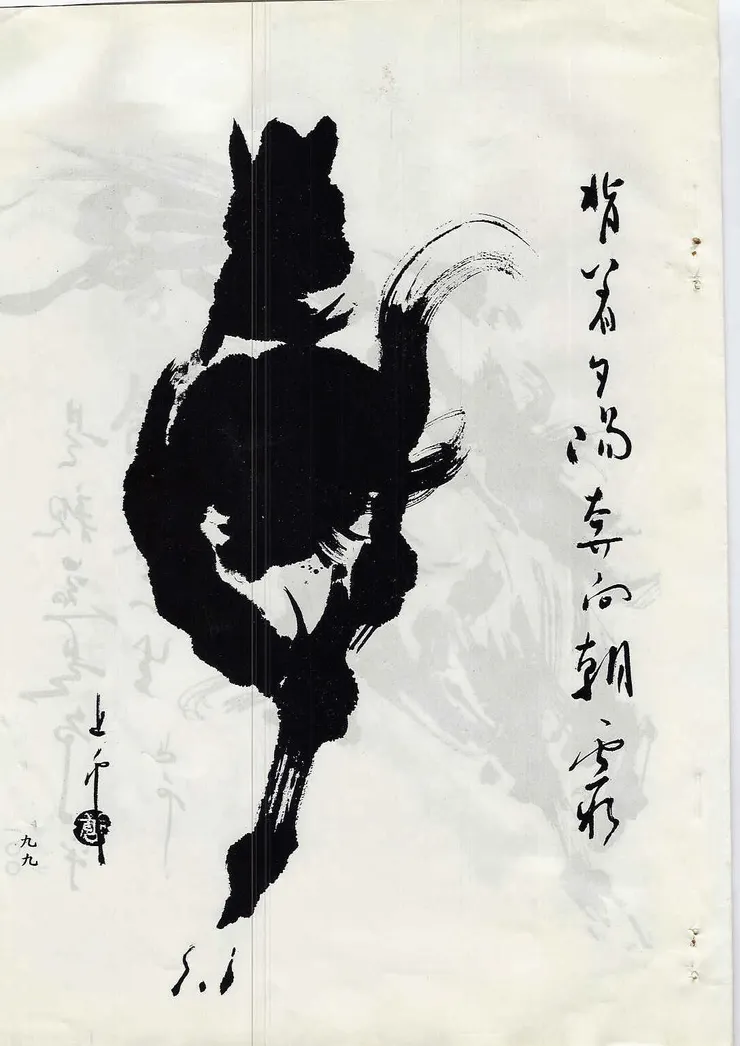 背着夕陽奔向朝霞
九九